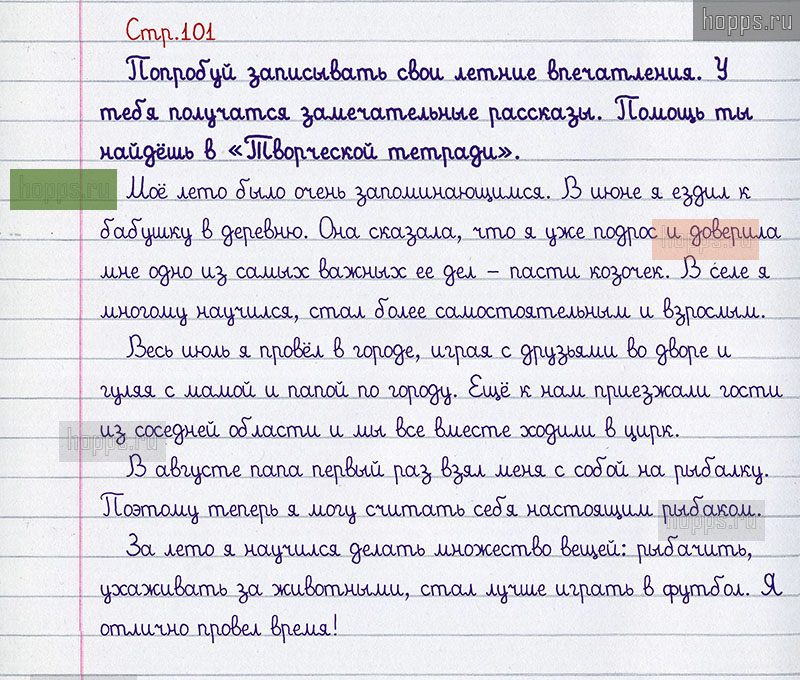 hopps.ru
Стр.101
Попробуй записывать свои летние впечатления. У
тебя получатся замечательные рассказы. Помощь ты
найдёшь в «Творческой тетради».
hopps.ru
Моё лето было очень запоминающимся. В июне я ездил к
бабушку в деревню. Она сказала, что я уже подрос и доверила
hopps.ru
мне одно из самых важных ее дел – пасти козочек. В селе я
многому научился, стал более самостоятельным и взрослым.
Весь июль я провёл в городе, играя с друзьями во дворе и
гуляя с мамой и папой по городу. Ещё к нам приезжали гости
из соседней области и мы все вместе ходили в цирк.
hopps.ru
В августе папа первый раз взял меня с собой на рыбалку.
Поэтому теперь я могу считать себя настоящим рыбаком.
hopps.ru
За лето я научился делать множество вещей: рыбачить,
ухаживать за животными, стал лучше играть в футбол. Я
отлично провел время!